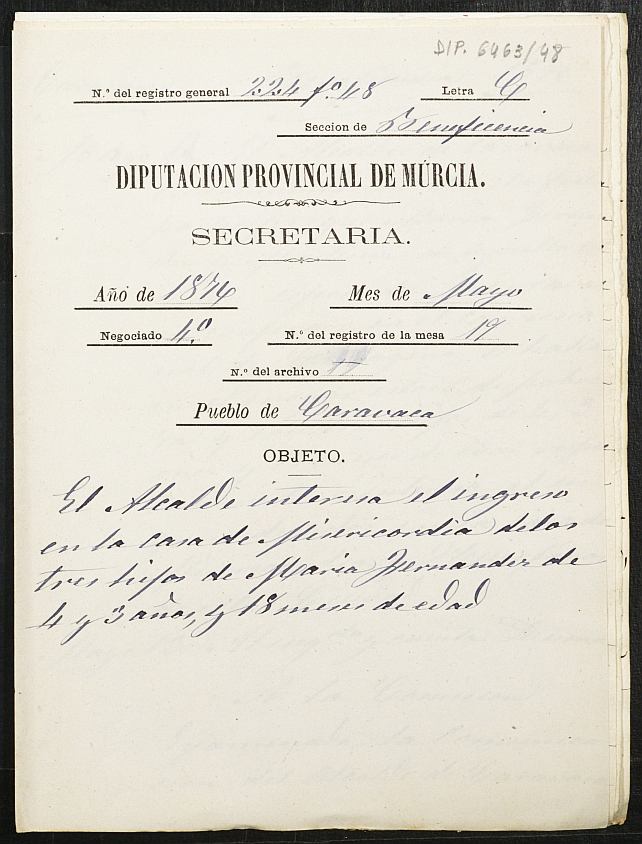 DIP. 6463/48
N.º del registro general 224 fº 48 Letra C
Seccion de Beneficencia
DIPUTACION PROVINCIAL DE MÚRCIA.
SECRETARIA.
Año de 1874 Mes de Mayo
Negociado 4.º N.º del registro de la mesa 19
N.º del archivo
Pueblo de Caravaca
OBJETO.
El Alcalde interesa el ingreso
en la casa de Misericordia de los
tres hijos de Maria Fernandez de
4 y 3 años, y 18 meses de edad